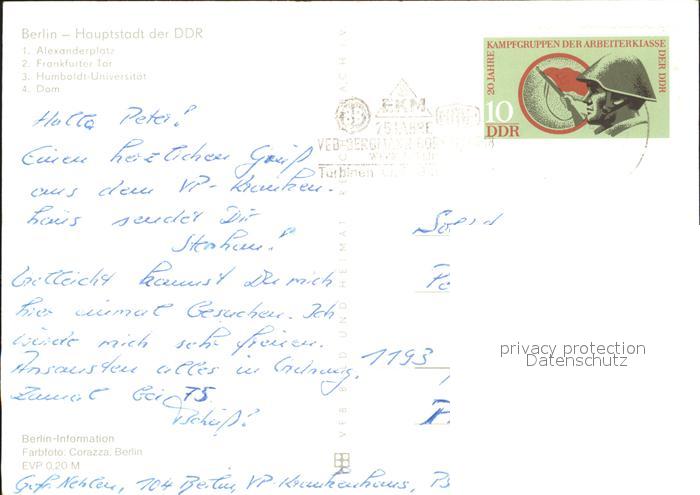 Berlin – Hauptstadt der DDR
1. Alexanderplatz
2. Frankfurter Tor
3. Humboldt-Universität
4. Dom
20 JAHRE KAMPFGRUPPEN DER ARBEITERKLASSE DER DDR
10
DDR
EKM
75 JAHRE
VEB-BERGMANN-BORSIG
Turbinen
Hallo Peter!
Einen herzlichen Gruß
aus dem VP-Kranken-
haus sendet Dir
Stephan!
Vielleicht kannst Du mich
hier einmal besuchen. Ich
würde mich sehr freuen.
Ansonsten alles in Ordnung.
Zumal bei
Tschüß!
1193
privacy protection
Datenschutz
VEB BILD UND HEIMAT REICHENBACH I. V.
Berlin-Information
Farbfoto: Corazza, Berlin
EVP 0,20 M
104 Berlin, VP-Krankenhaus,